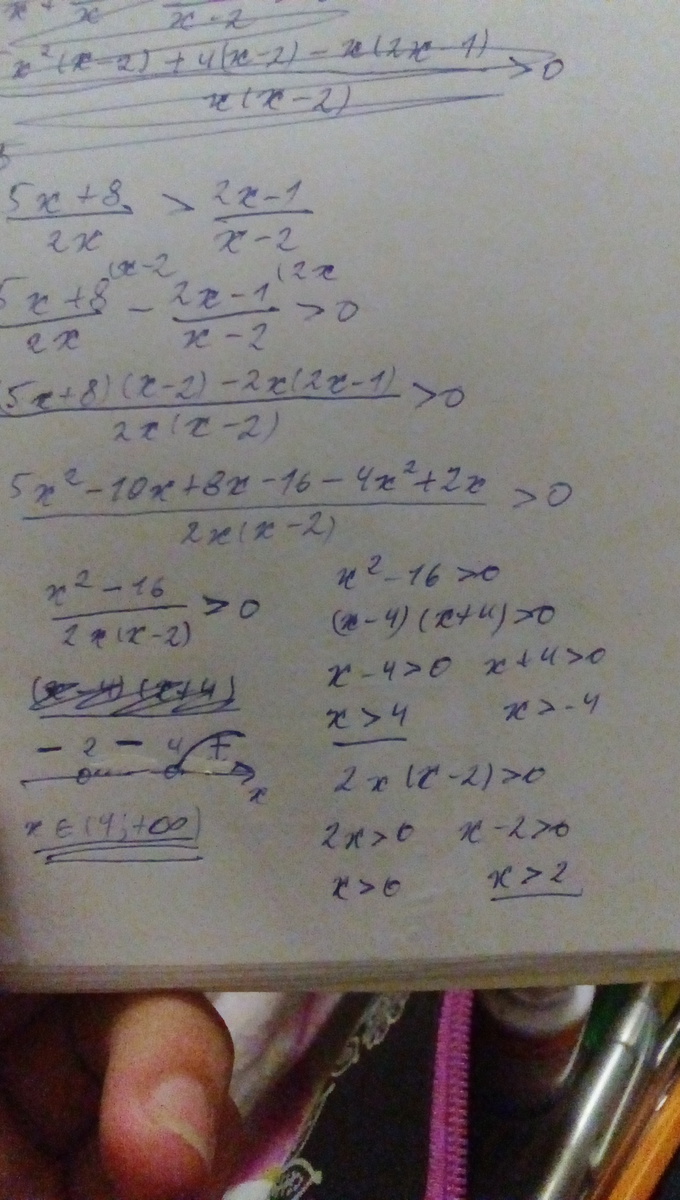 x²(x-2) + 4(x-2) - x(2x-1) / x(x-2) > 0
5x+8 / 2x > 2x-1 / x-2
5x+8 (x-2 / 2x - 2x-1 (2x / x-2 > 0
(5x+8)(x-2) - 2x(2x-1) / 2x(x-2) > 0
5x² - 10x + 8x - 16 - 4x² + 2x / 2x(x-2) > 0
x² - 16 / 2x(x-2) > 0
(x-4)(x+4)
- 2 - 4 +
x
x ∈ (4; +∞)
x² - 16 > 0
(x-4)(x+4) > 0
x-4 > 0 x+4 > 0
x > 4 x > -4
2x(x-2) > 0
2x > 0 x-2 > 0
x > 0 x > 2